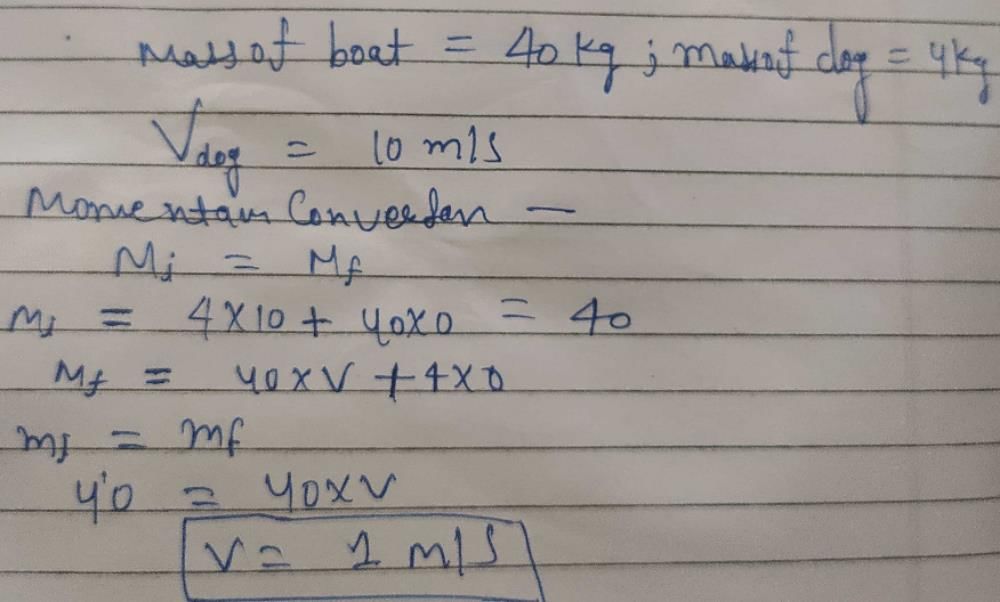 Mass of boat = 40 kg ; mass of dog = 4kg
Vdog = 10 m/s
Momentam Conversan —
Mi = Mf
Mi = 4×10 + 40×0 = 40
Mf = 40×V + 4×0
mi = mf
40 = 40×V
V = 1 m/s